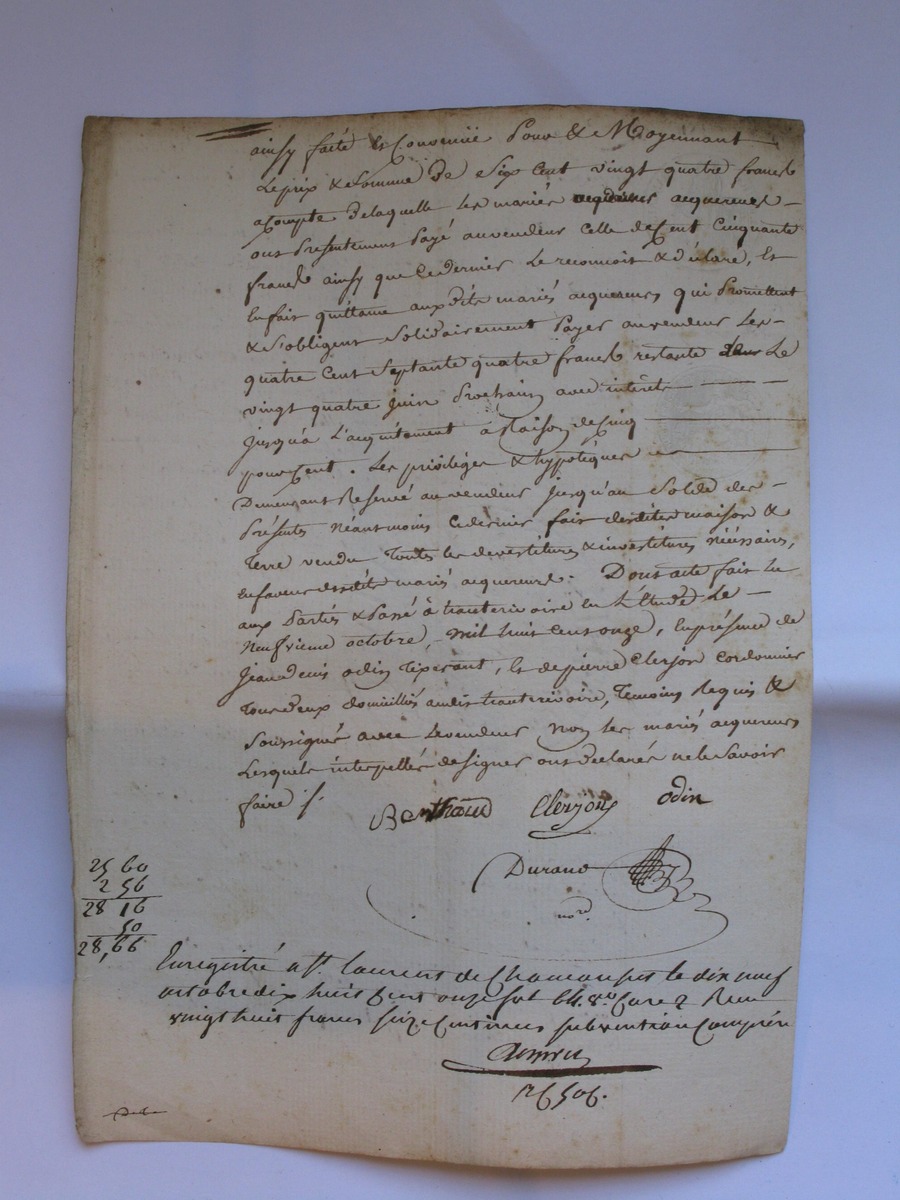 ainsy faite & Convenüe Pour & Moyennant
Le prix & Somme De Six Cent vingt quatre francs
a Compte De laquelle Les mariés acquereurs
ont Presentement Payé au vendeur Celle de Cent Cinquante
francs ainsy que Ce dernier Le reconnoit & déclare, Et
En fait quittance aux dits mariés acquereurs qui Promettent
& S'obligent Solidairement Payer au vendeur Les
quatre Cent Septante quatre francs restants Le
vingt quatre Juin Prochain avec intérêts
Jusqu'à L'acquitement à Raison de Cinq
pour Cent. Les privilèges & hypotèques
Demeurants Reservé au vendeur Jusqu'au Solde des
Présentes Néantmoins Ce dernier fait desdites maison &
Terre vendu Toutes les devestitures & investitures nécessaires,
En faveur desdits mariés acquereurs. Dont acte fait Lu
aux Parties & Passé à hauterivoire En L'Etude Le
Neufvieme octobre, mil huit Cent onze, En présence de
Jean denis odin Tixerant, & de pierre Clerjon Cordonnier
Tous deux domiciliés audit hauterivoire, Temoins Requis &
Soussignés avec Le vendeur Non Les mariés acquereurs
Lesquels interpellés de Signer ont Declarés ne le Savoir
faire /.
Berthoud Clerjon odin
Durand
nore.
25 60
2 56
28 16
50
28,66
Enregistré a St. Laurent de Chamousset le dix neuf
octobre dix huit Cent onze fol 64. Vo. Care 2 Recu
vingt huit francs Seize Centimes subvention Comprise